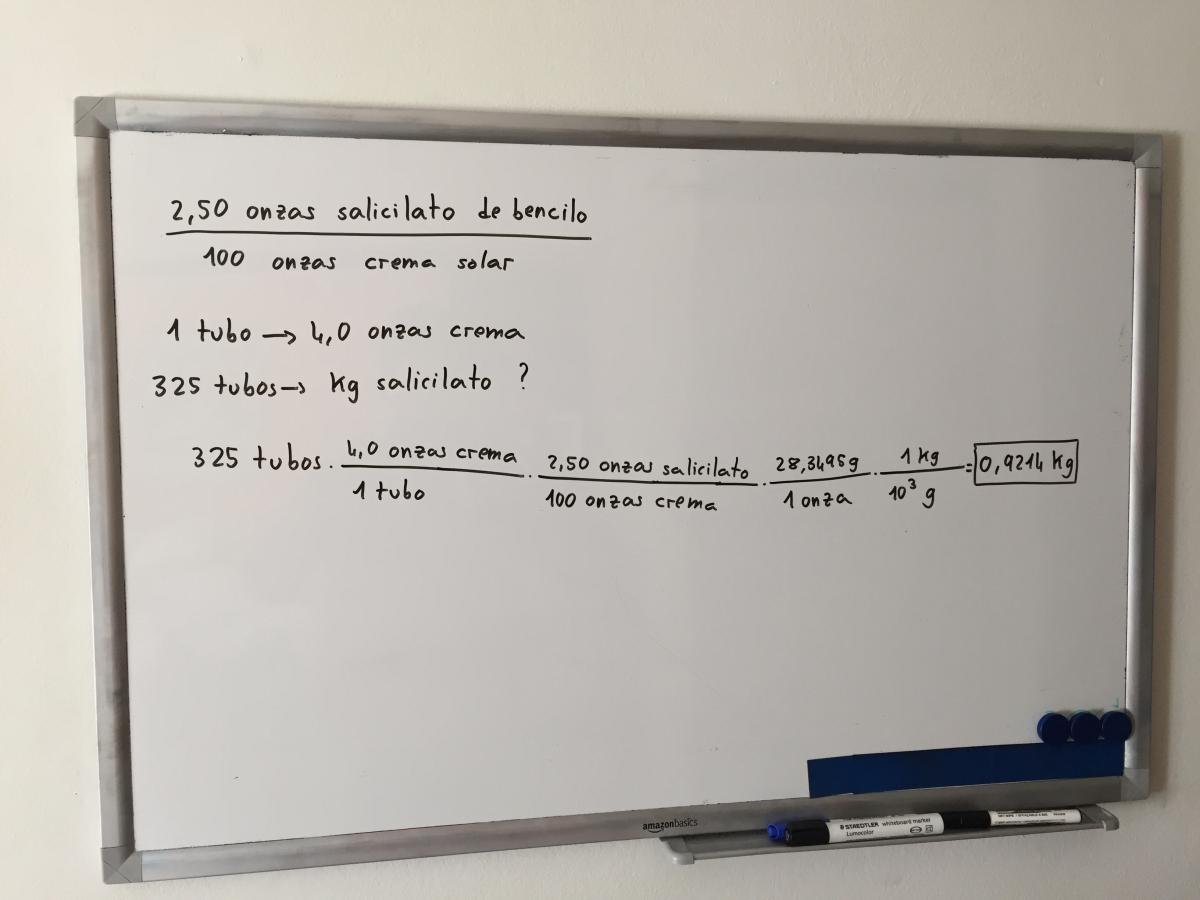 2,50 onzas salicilato de bencilo
100 onzas crema solar
1 tubo → 4,0 onzas crema
325 tubos → Kg salicilato ?
325 tubos · 4,0 onzas crema / 1 tubo · 2,50 onzas salicilato / 100 onzas crema · 28,3495g / 1 onza · 1 Kg / 10³ g = 0,9214 Kg
amazonbasics
STAEDTLER whiteboard marker
Lumocolor